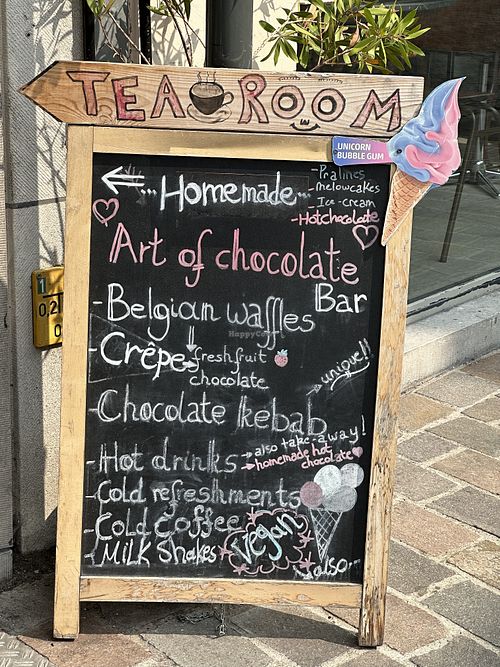 TEA ROOM
UNICORN
BUBBLE GUM
... Homemade...
- Pralines
- melowcakes
- Ice-cream
- Hotchocolate
Art of chocolate
Bar
- Belgian waffles
- Crêpes
fresh fruit
chocolate
unique!!
- Chocolate kebab
- Hot drinks
also take-away!
homemade hot
chocolate
- Cold refreshments
- Cold coffee
- Milk Shakes
Vegan
also...
HappyCow
1
0.2
0